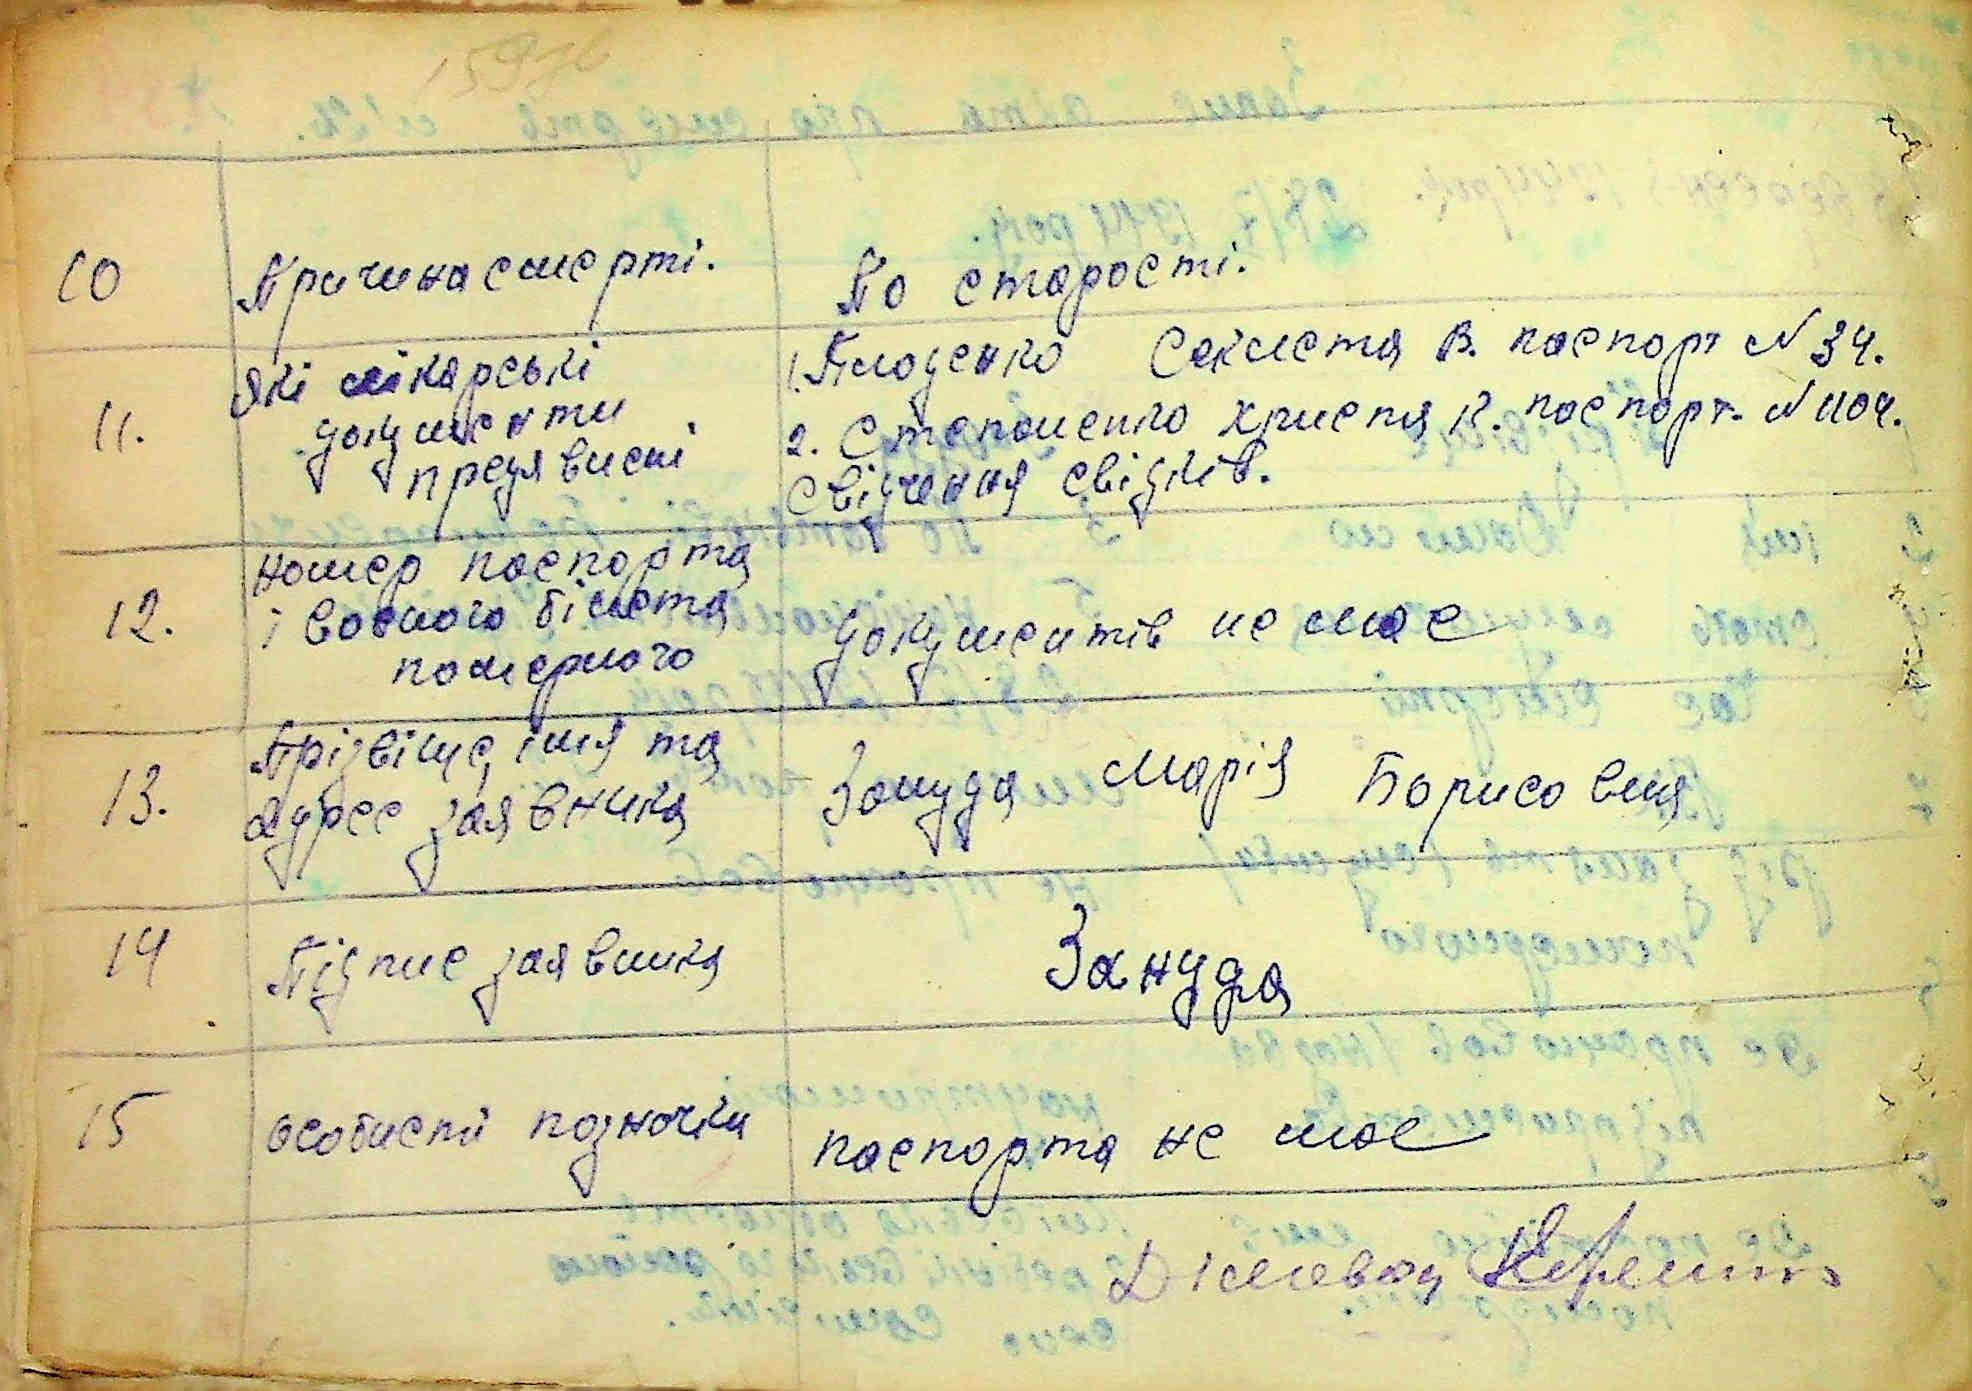 10 Причина смерти. По старості.
11. які лікарські документи предявлені
1. Плюценко Секлета В. паспорт № 34.
2. Степаненко Христя К. паспорт. № 1104.
Свідчення свідків.
12. номер паспорта і воєного білета померлого
документів не має
13. Прізвіще, імя та адрес заявника
Зануда Марія Борисовна
14 Підпис заявника Зануда
15 особисті позначки паспорта не має
Діловод